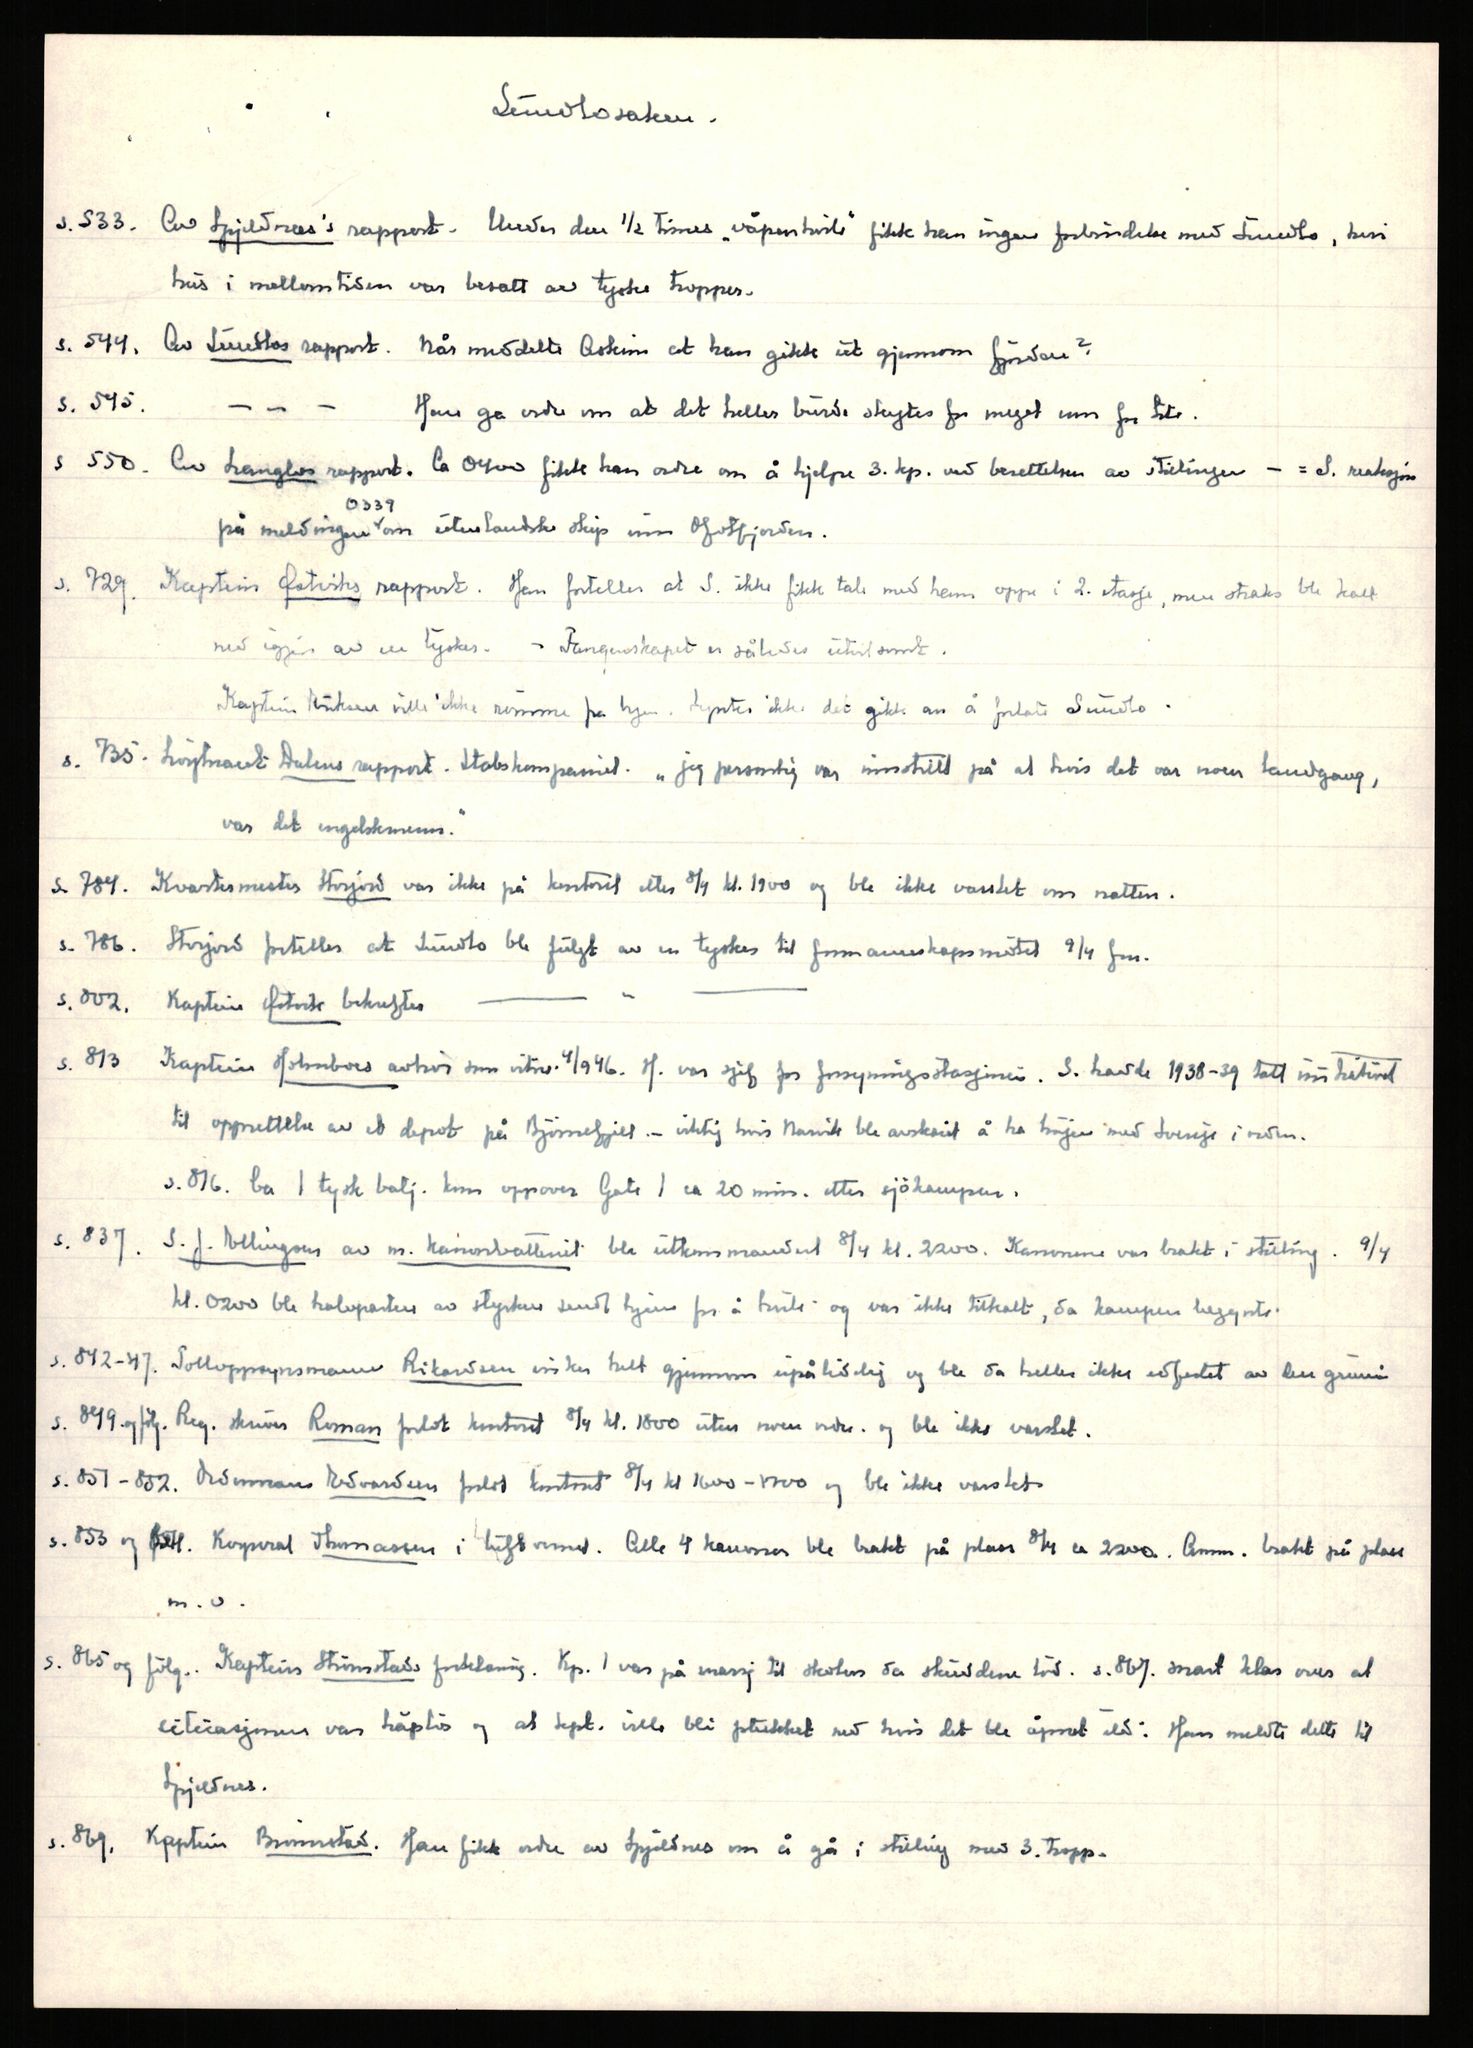 Sundlosaken.
s. 533. Av Spjeldnæs's rapport. Under den 1/2 times „våpenhvile" fikk han ingen forbindelse med Sundlo, hvis
hus i mellomtiden var besatt av tyske tropper.
s. 544. Av Sundlos rapport. Når meddelte Askim at han gikk ut gjennom fjorden?
s. 545. — „ — Han ga ordre om at det heller burde skytes for meget enn for lite.
s 550. Av Langlos rapport. Ca 0400 fikk han ordre om å hjelpe 3. kp. ved besettelsen av stillingen — = S. reaksjon
på meldingen 0339 om utenlandske skip inn Ofotfjorden.
s. 729. Kaptein Østviks rapport. Han forteller at S. ikke fikk tale med ham oppe i 2. etasje, men straks ble kalt
ned igjen av en tysker. – Fangenskapet er således utvilsomt.
Kaptein ville ikke rømme fra byen. Syntes ikke det gikk an å forlate Sundlo.
s. 735. Løytnant Dalens rapport. Stabskompaniet. „jeg personlig var innstillt på at hvis det var noen landgang,
var det engelskmenn."
s. 784. Kvartermester Storjord var ikke på kontoret etter 8/4 kl. 1900 og ble ikke varslet om natten.
s. 786. Storjord forteller at Sundlo ble fulgt av en tysker til formannskapsmøtet 9/4 fm.
s. 802. Kaptein Østvik bekrefter —— „ ——
s. 813 Kaptein Holmboes avhør som vitne 4/9 46. H. var sjef for forsyningsstasjonen. S. hadde 1938-39 tatt initiativet
til opprettelse av et depot på Bjørnefjell. – viktig hvis Narvik ble avskåret å ha linjen med Sverige i orden.
s. 816. Ca 1 tysk batj. kom oppover Gate 1 ca 20 min. etter sjøkampen.
s. 837. S. J. Ellingsen av m. kanonbatteriet ble utkommandert 8/4 kl. 2200. Kanonene var brakt i stilling. 9/4
kl. 0200 ble halvparten av styrken sendt hjem for å hvile og var ikke tilkalt, da kampen begynte.
s. 842-47. Tolloppsynsmann Rikardsen virker helt gjennom upålidelig og ble da heller ikke edfestet av den grunn
s. 849 og følg. Reg. skriver Roman forlot kontoret 8/4 kl. 1800 uten noen ordre. og ble ikke varslet.
s. 851-852. Ordonnans Edvardsen forlot kontoret 8/4 kl 1600-1700 og ble ikke varslet
s. 853 og 854. Korporal Thomassen i luftvernet. Alle 4 kanoner ble brakt på plass 8/4 ca 2200. Amm. brakt på plass
m. v.
s. 865 og følg.. Kaptein Strømstads forklaring. Kp. 1 var på marsj til skolen da skuddene lød. s. 867. snart klar over at
situasjonen var håpløs og at kpt. ville bli plukket ned hvis det ble åpnet ild. Han meldte dette til
Spjeldnes.
s. 869. Kaptein Brønnstad. Han fikk ordre av Spjeldnes om å gå i stilling med 3. tropp.